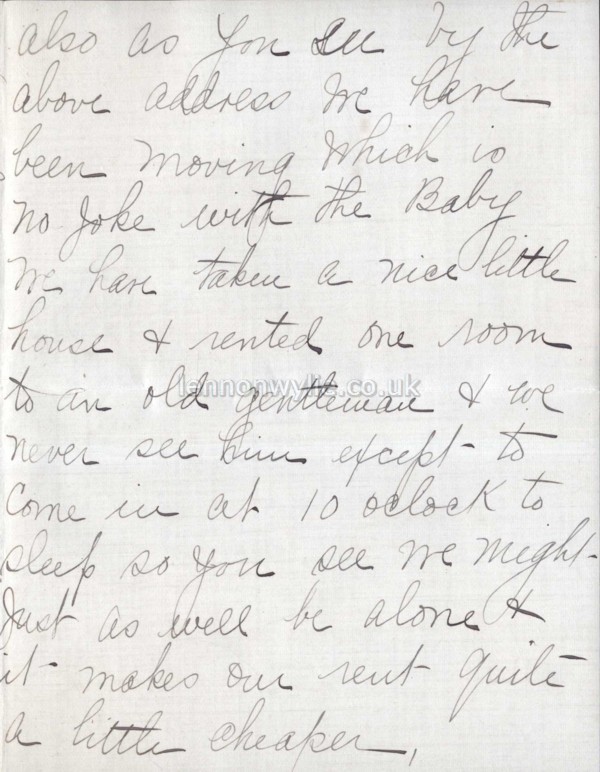 also as you see by the
above address we have
been moving which is
no Joke with the Baby
We have taken a nice little
house & rented one room
lennonwylie.co.uk
to an old gentleman & we
never see him except to
Come in at 10 oclock to
sleep so you see we might
Just as well be alone &
it makes our rent quite
a little cheaper,